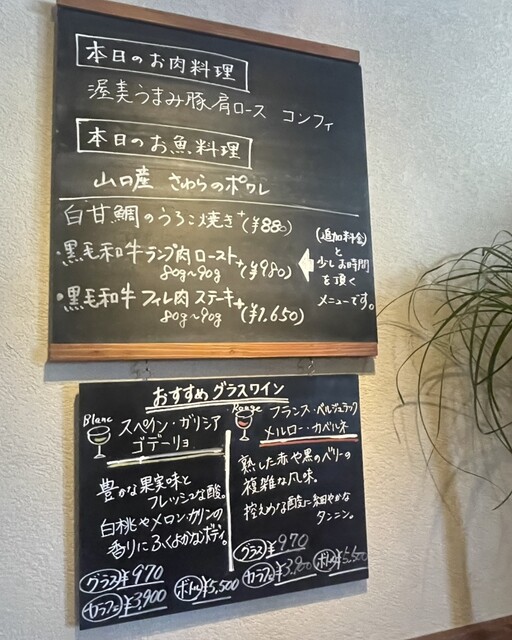 本日のお肉料理
渥美うまみ豚肩ロース コンフィ
本日のお魚料理
山口産 さわらのポワレ
白甘鯛のうろこ焼き+(¥880)
・黒毛和牛ランプ肉ロースト+(¥980)
80g〜90g
・黒毛和牛フィレ肉ステーキ+(¥1,650)
80g〜90g
(追加料金)
と
少しお時間
を頂く
メニューです。
おすすめグラスワイン
Blanc
スペイン・ガリシア
ゴデーリョ
豊かな果実味と
フレッシュな酸。
白桃やメロン・カリンの
香りにふくよかなボディ。
グラス¥970
カラフェ¥3,900
ボトル¥5,500
Rouge
フランス・ベルジュラック
メルロー・カベルネ
熟した赤や黒のベリーの
複雑な風味。
控えめな酸に細やかな
タンニン。
グラス¥970
カラフェ¥3,900
ボトル¥5,500